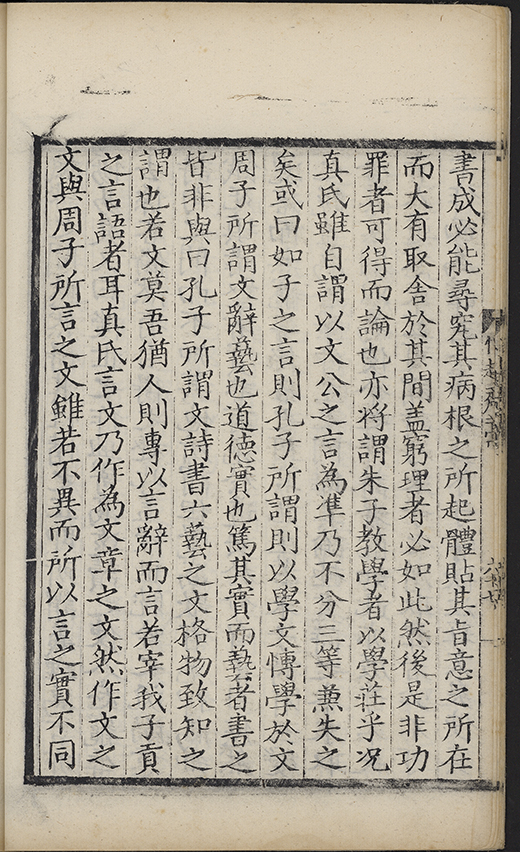 書成必能尋究其病根之所起體貼其旨意之所在
而大有取舍於其間盖窮理者必如此然後是非功
罪者可得而論也亦將謂朱子教學者以學莊乎况
真氏雖自謂以文公之言為準乃不分三等兼失之
矣或曰如子之言則孔子所謂則以學文愽學於文
周子所謂文辭藝也道德實也篤其實而藝者書之
皆非與曰孔子所謂文詩書六藝之文格物致知之
謂也若文莫吾猶人則專以言辭而言若宰我子貢
之言語者耳真氏言文乃作為文章之文然作文之
文與周子所言之文雖若不異而所以言之實不同